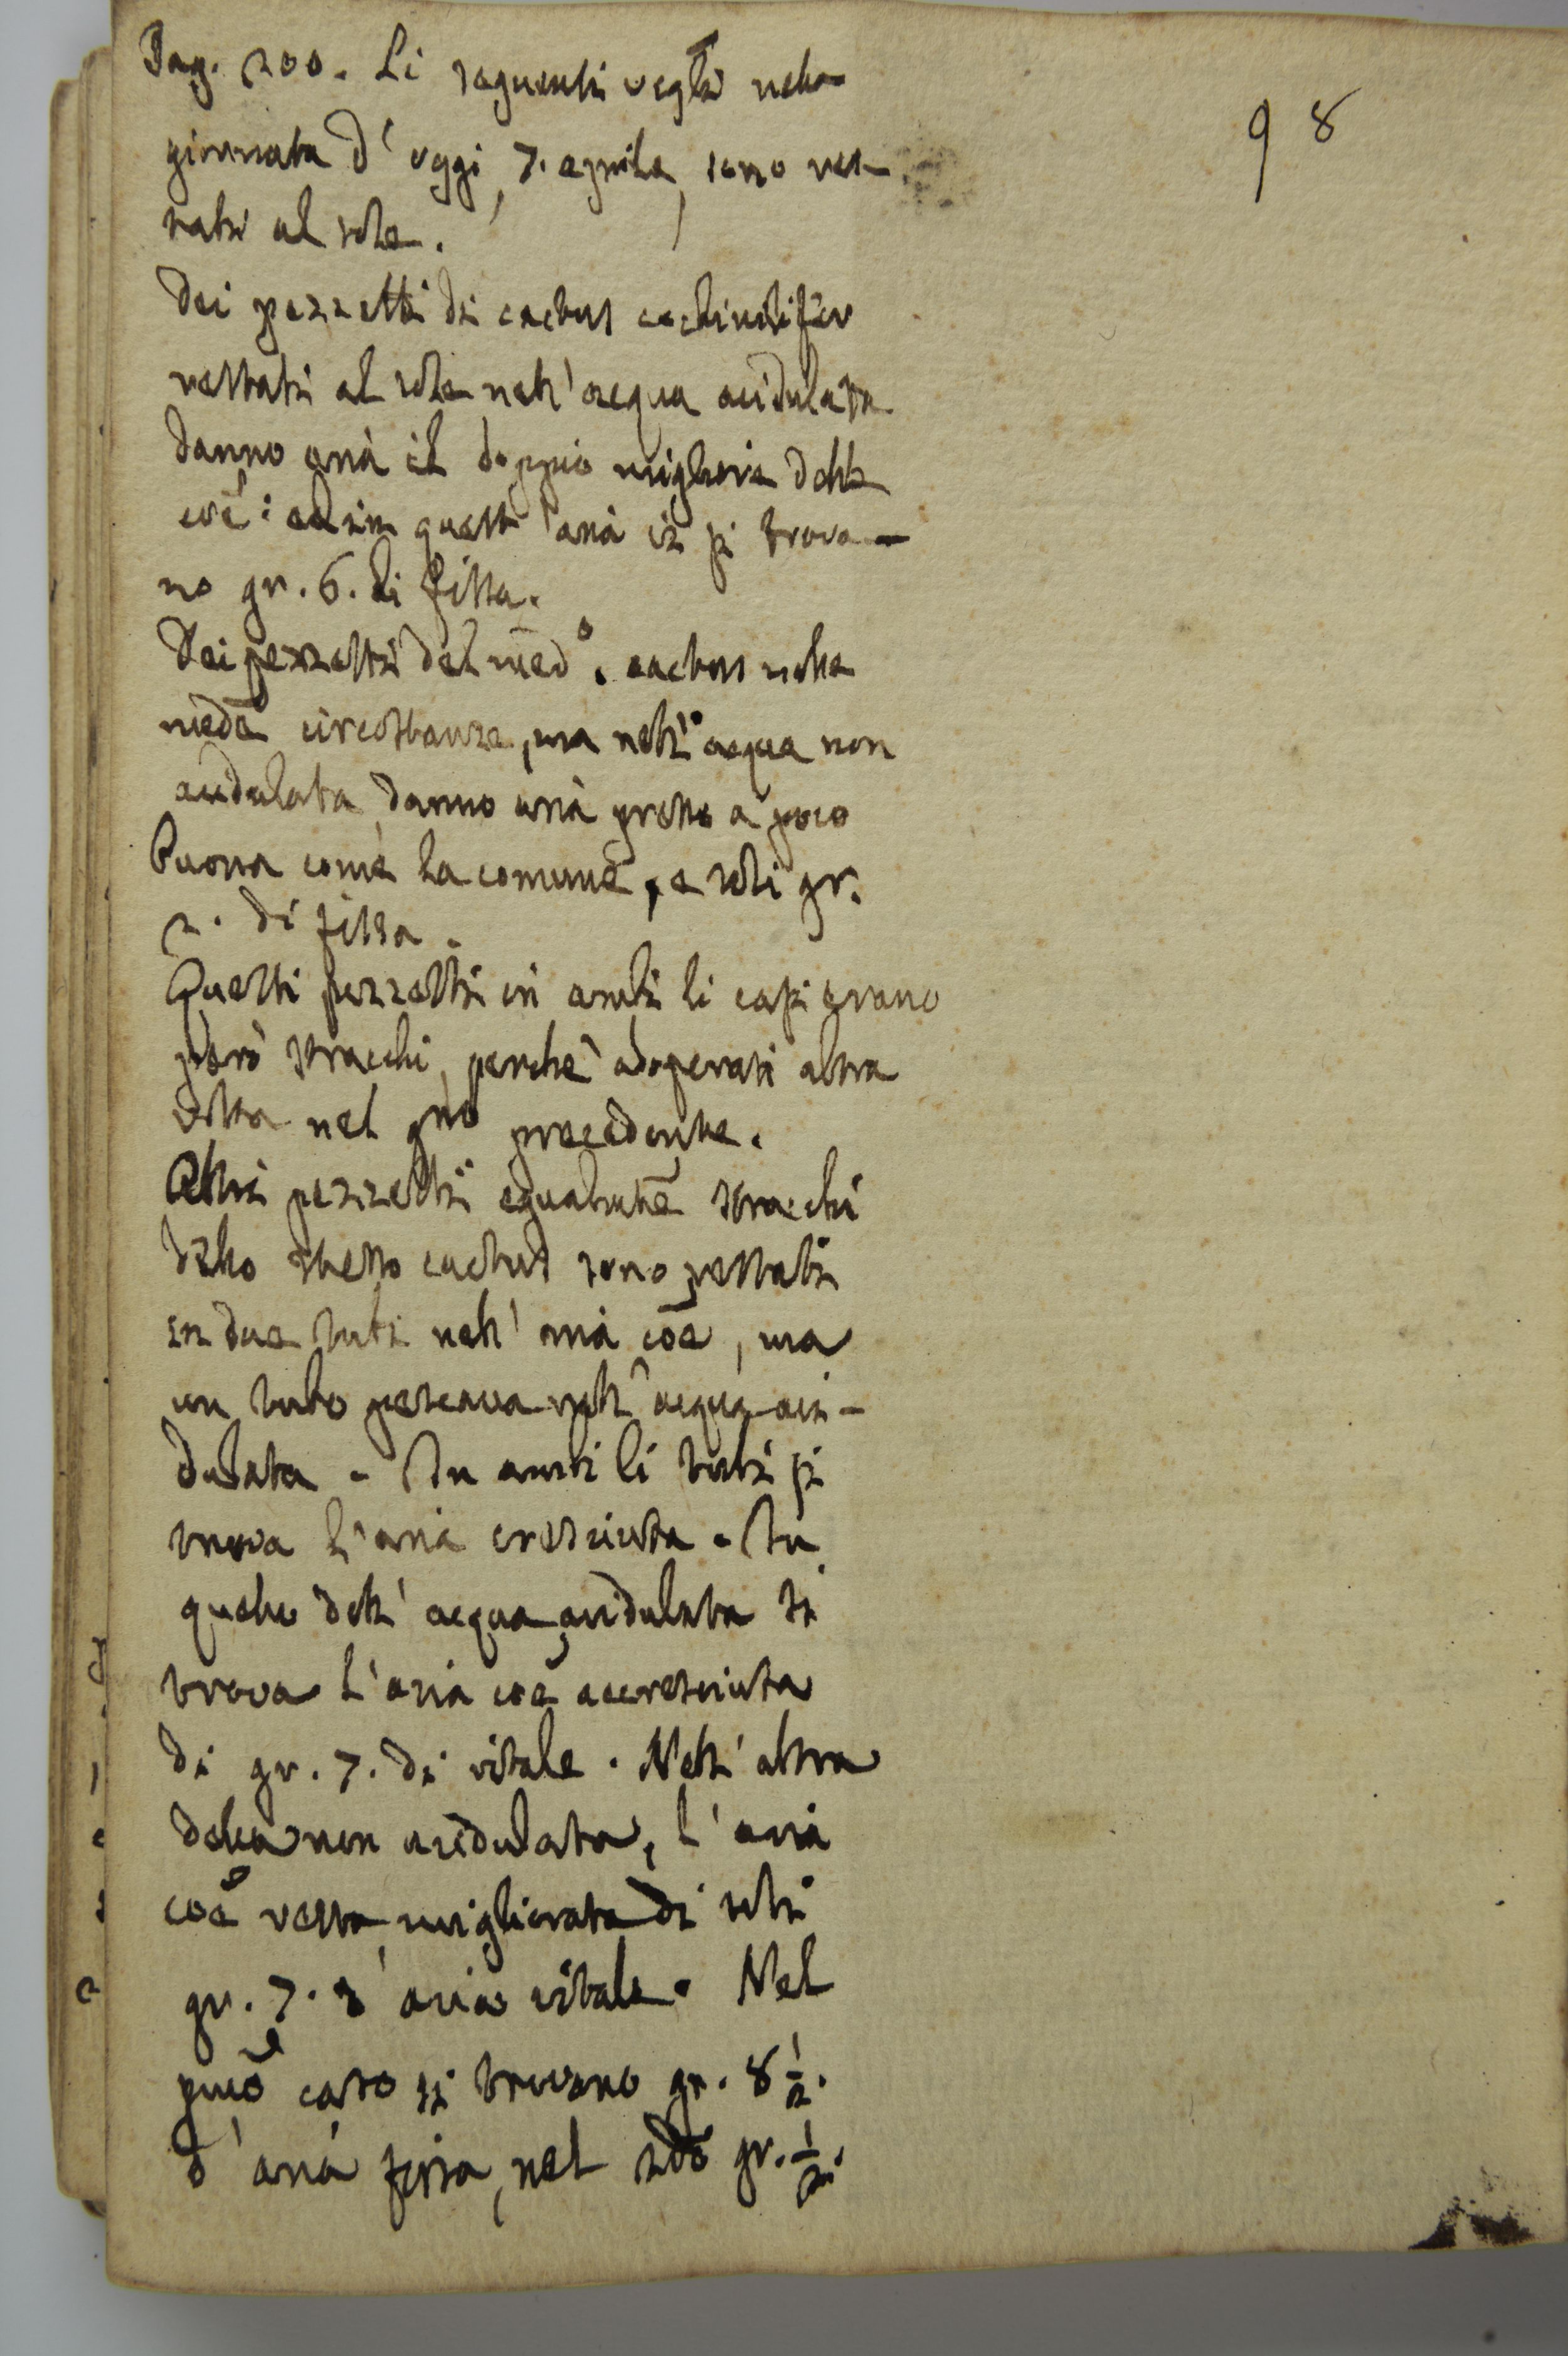 Pag. 200. Li seguenti vegli nella
98
giornata d'oggi, 7. aprile, sono res-
tati al sole.
Dei pezzetti di cactus cochinilifer
restati al sole nell'acqua acidulata
danno aria il doppio migliore della
coe: ed in quest'aria vi si trova-
no gr. 6. di fissa.
Dei pezzetti del med°. cactus nelle
mede circostanze, ma nell'acqua non
acidulata danno aria presso a poco
buona come la comune, e soli gr.
2. di fissa.
Questi pezzetti in ambi li casi erano
però stracchi, perchè adoperati altra
volta nel gno precedente.
Altri pezzetti egualmte stracchi
dello stesso cactus sono restati
in due tubi nell'aria coe, ma
un tubo pescava nell'acqua aci-
dulata. In ambi li tubi si
trova l'aria cresciuta. In
quello dell'acqua acidulata si
trova l'aria coe accresciuta
di gr. 7. di vitale. Nell'altra
della non acidulata, l'aria
coe resta migliorata di soli
gr. 7. d'aria vitale. Nel
pmo caso si trovano gr. 8 1/2.
d'aria fissa, nel 2do gr. 1/2.